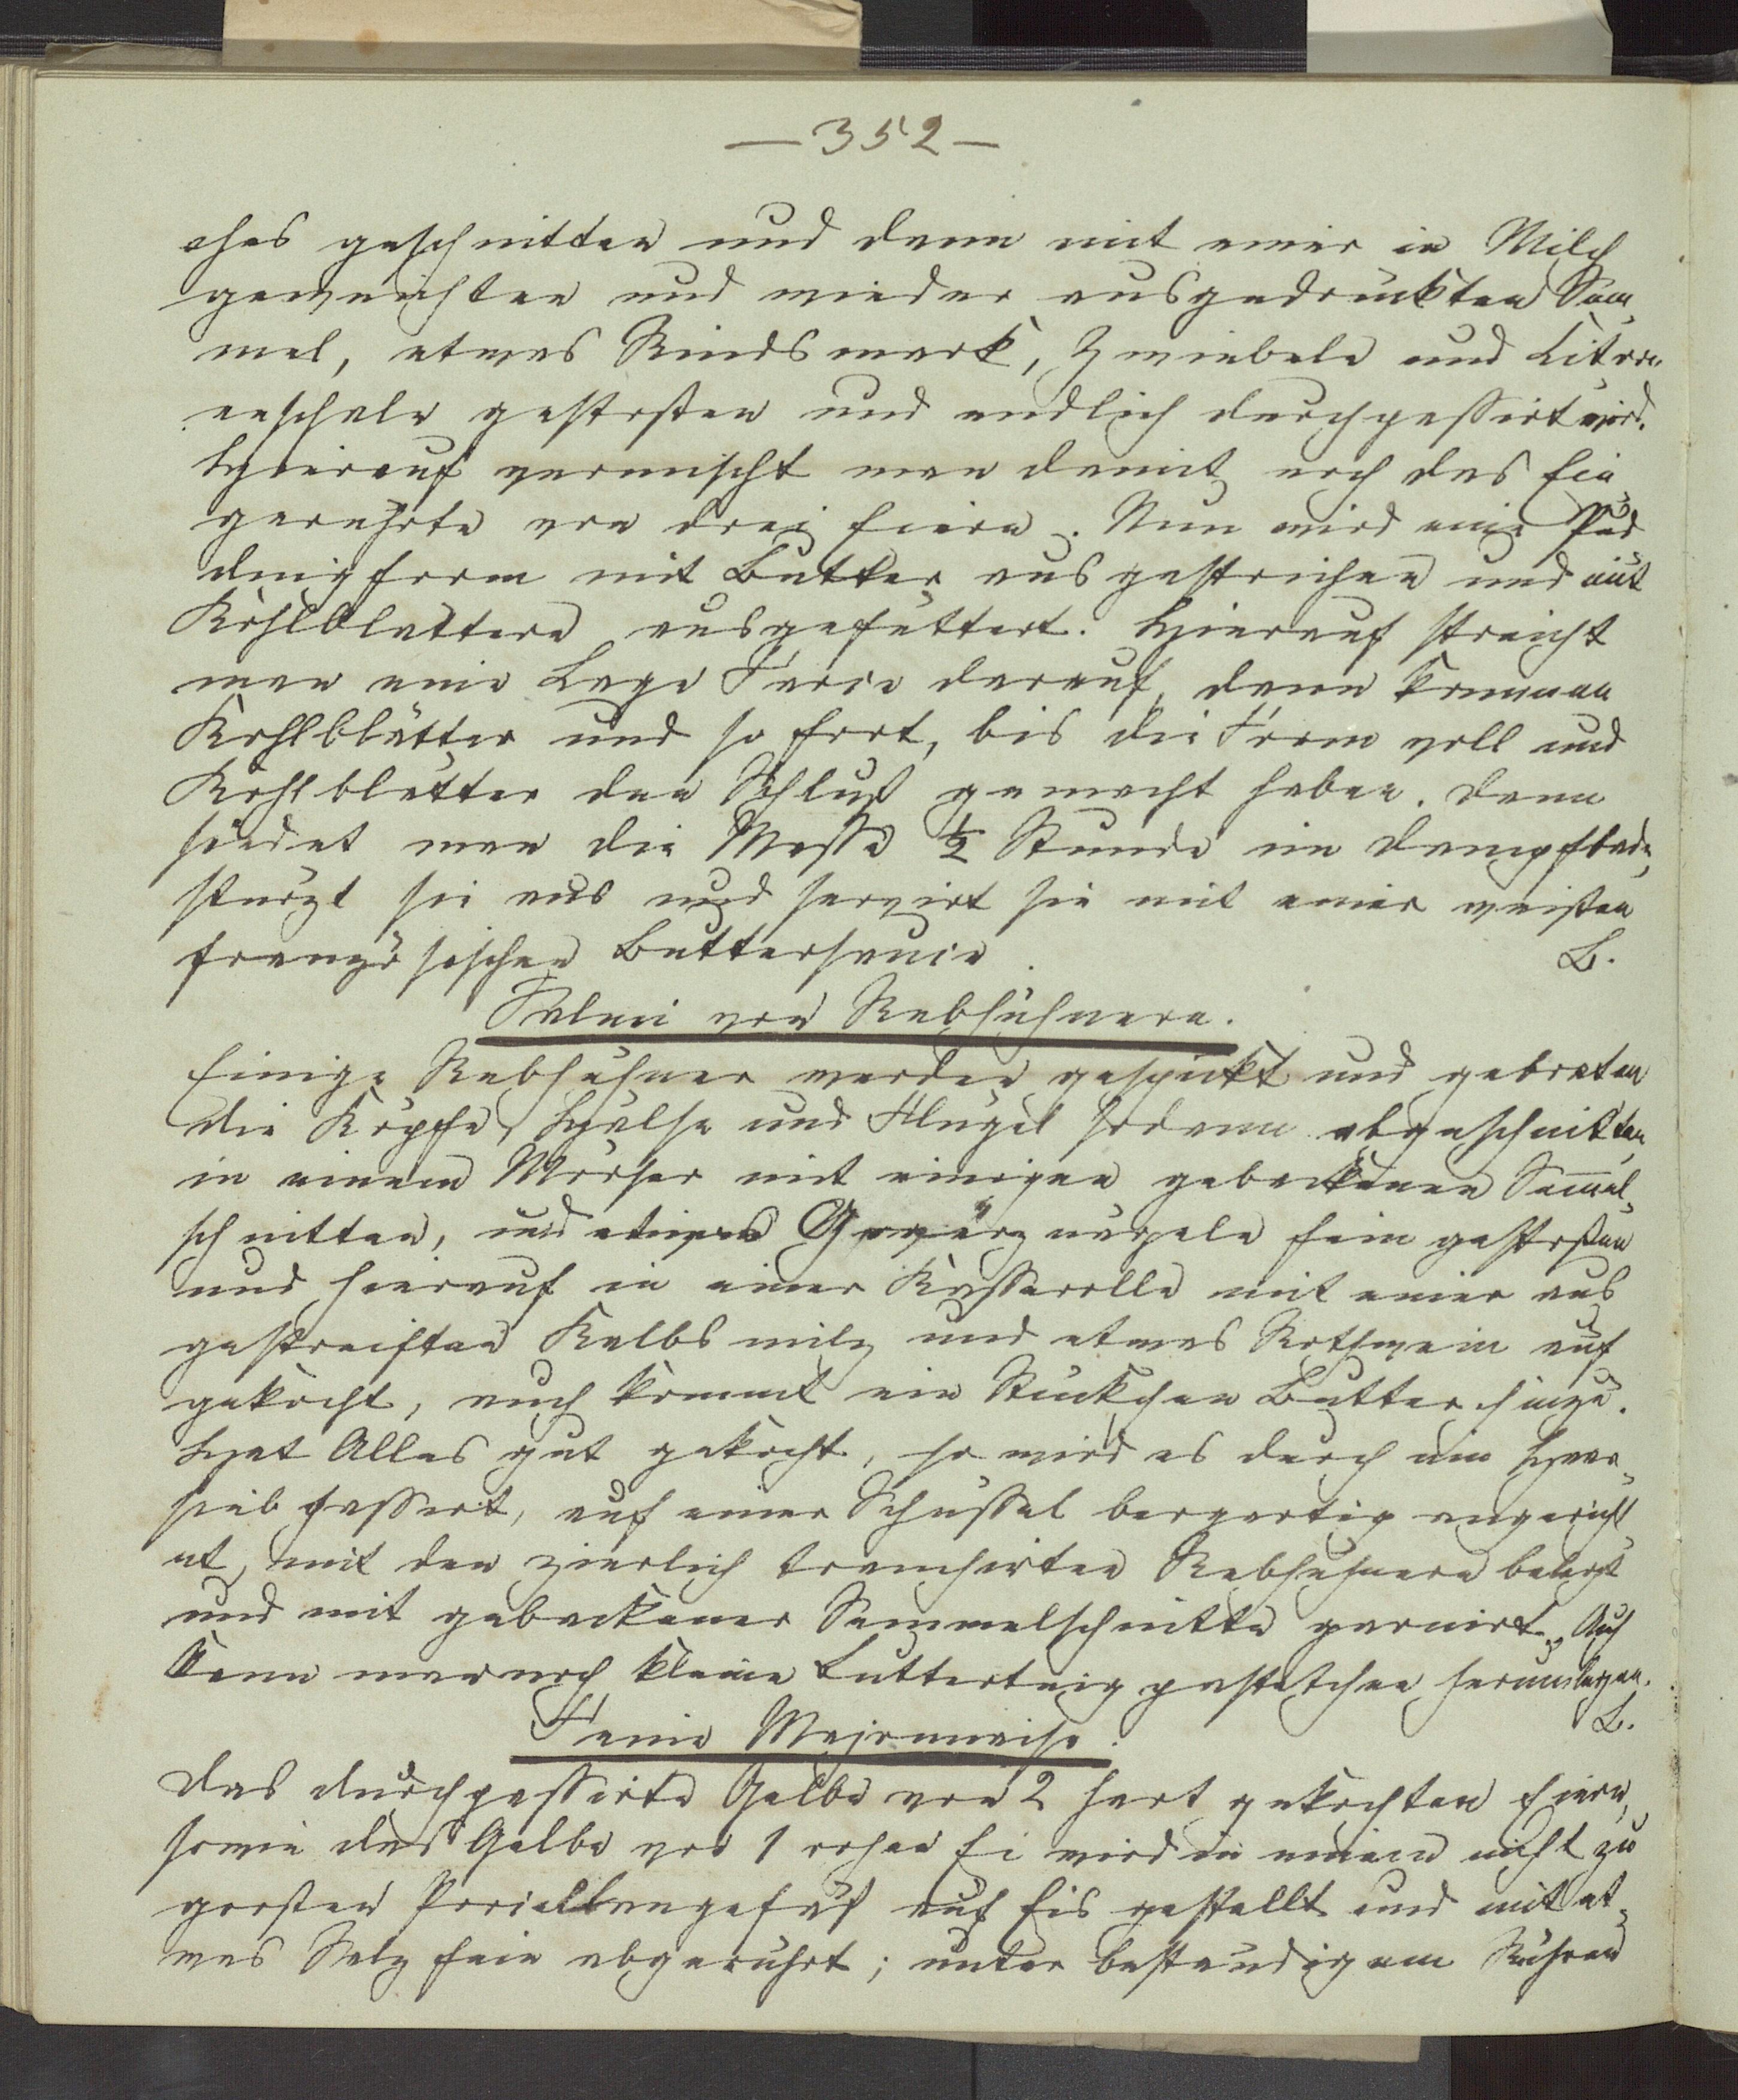 — 352 —
ches geschnitten und dann mit einer in Milch
geweichten und wieder ausgedrückten Sem¬
mel, etwas Rindsmark, Zwiebeln und Citro¬
nenschale gestoßen und endlich durchpassirt wird.
Hierauf vermischt man damit noch das Ein¬
gerührte von drei Eiern. Nun wird eine Pud¬
dingform mit Butter ausgestrichen und mit
Kohlblättern ausgefüttert. Hierauf streicht
man eine Lage Farce darauf, dann kommen
Kohlblätter und so fort, bis die Form voll und
Kohlblätter den Schluß gemacht haben. Dann
siedet man die Masse ½ Stunde im Dampfbade,
stürzt sie aus und servirt sie mit einer weißen
französischen Buttersauce. L.
Salmi von Rebhühnern.
Einige Rebhühner werden gespickt und gebraten
die Köpfe, Hälse und Flügel sodann abgeschnitten,
in einem Mörser mit einigen gebackenen Semmel¬
schnitten, und etwas Gewürznägeln fein gestoßen
und hierauf in einer Kasserolle mit einer aus
gestreiften Kalbsmilz und etwas Rothwein auf
gekocht, auch kommt ein Stückchen Butter hinzu.
Hat Alles gut gekocht, so wird es durch ein Haar¬
sieb passirt, auf einer Schüssel bergartig angericht¬
et, mit den zierlich tranchirten Rebhühnern belegt
und mit gebackener Semmelschnitte garnirt. Auch
kann man noch kleine Butterteigpastetchen herumlegen.
L.
Feine Majonnaise.
Das durchpassirte Gelbe von 2 hart gekochten Eiern,
sowie das Gelbe von 1 rohen Ei wird in einem nicht zu
großen Porcellangefäß auf Eis gestellt und mit et¬
was Salz fein abgerührt; unter beständigem Rühren